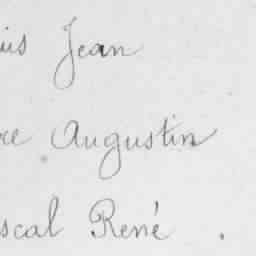 uis Jean
re Augustin
scal René .